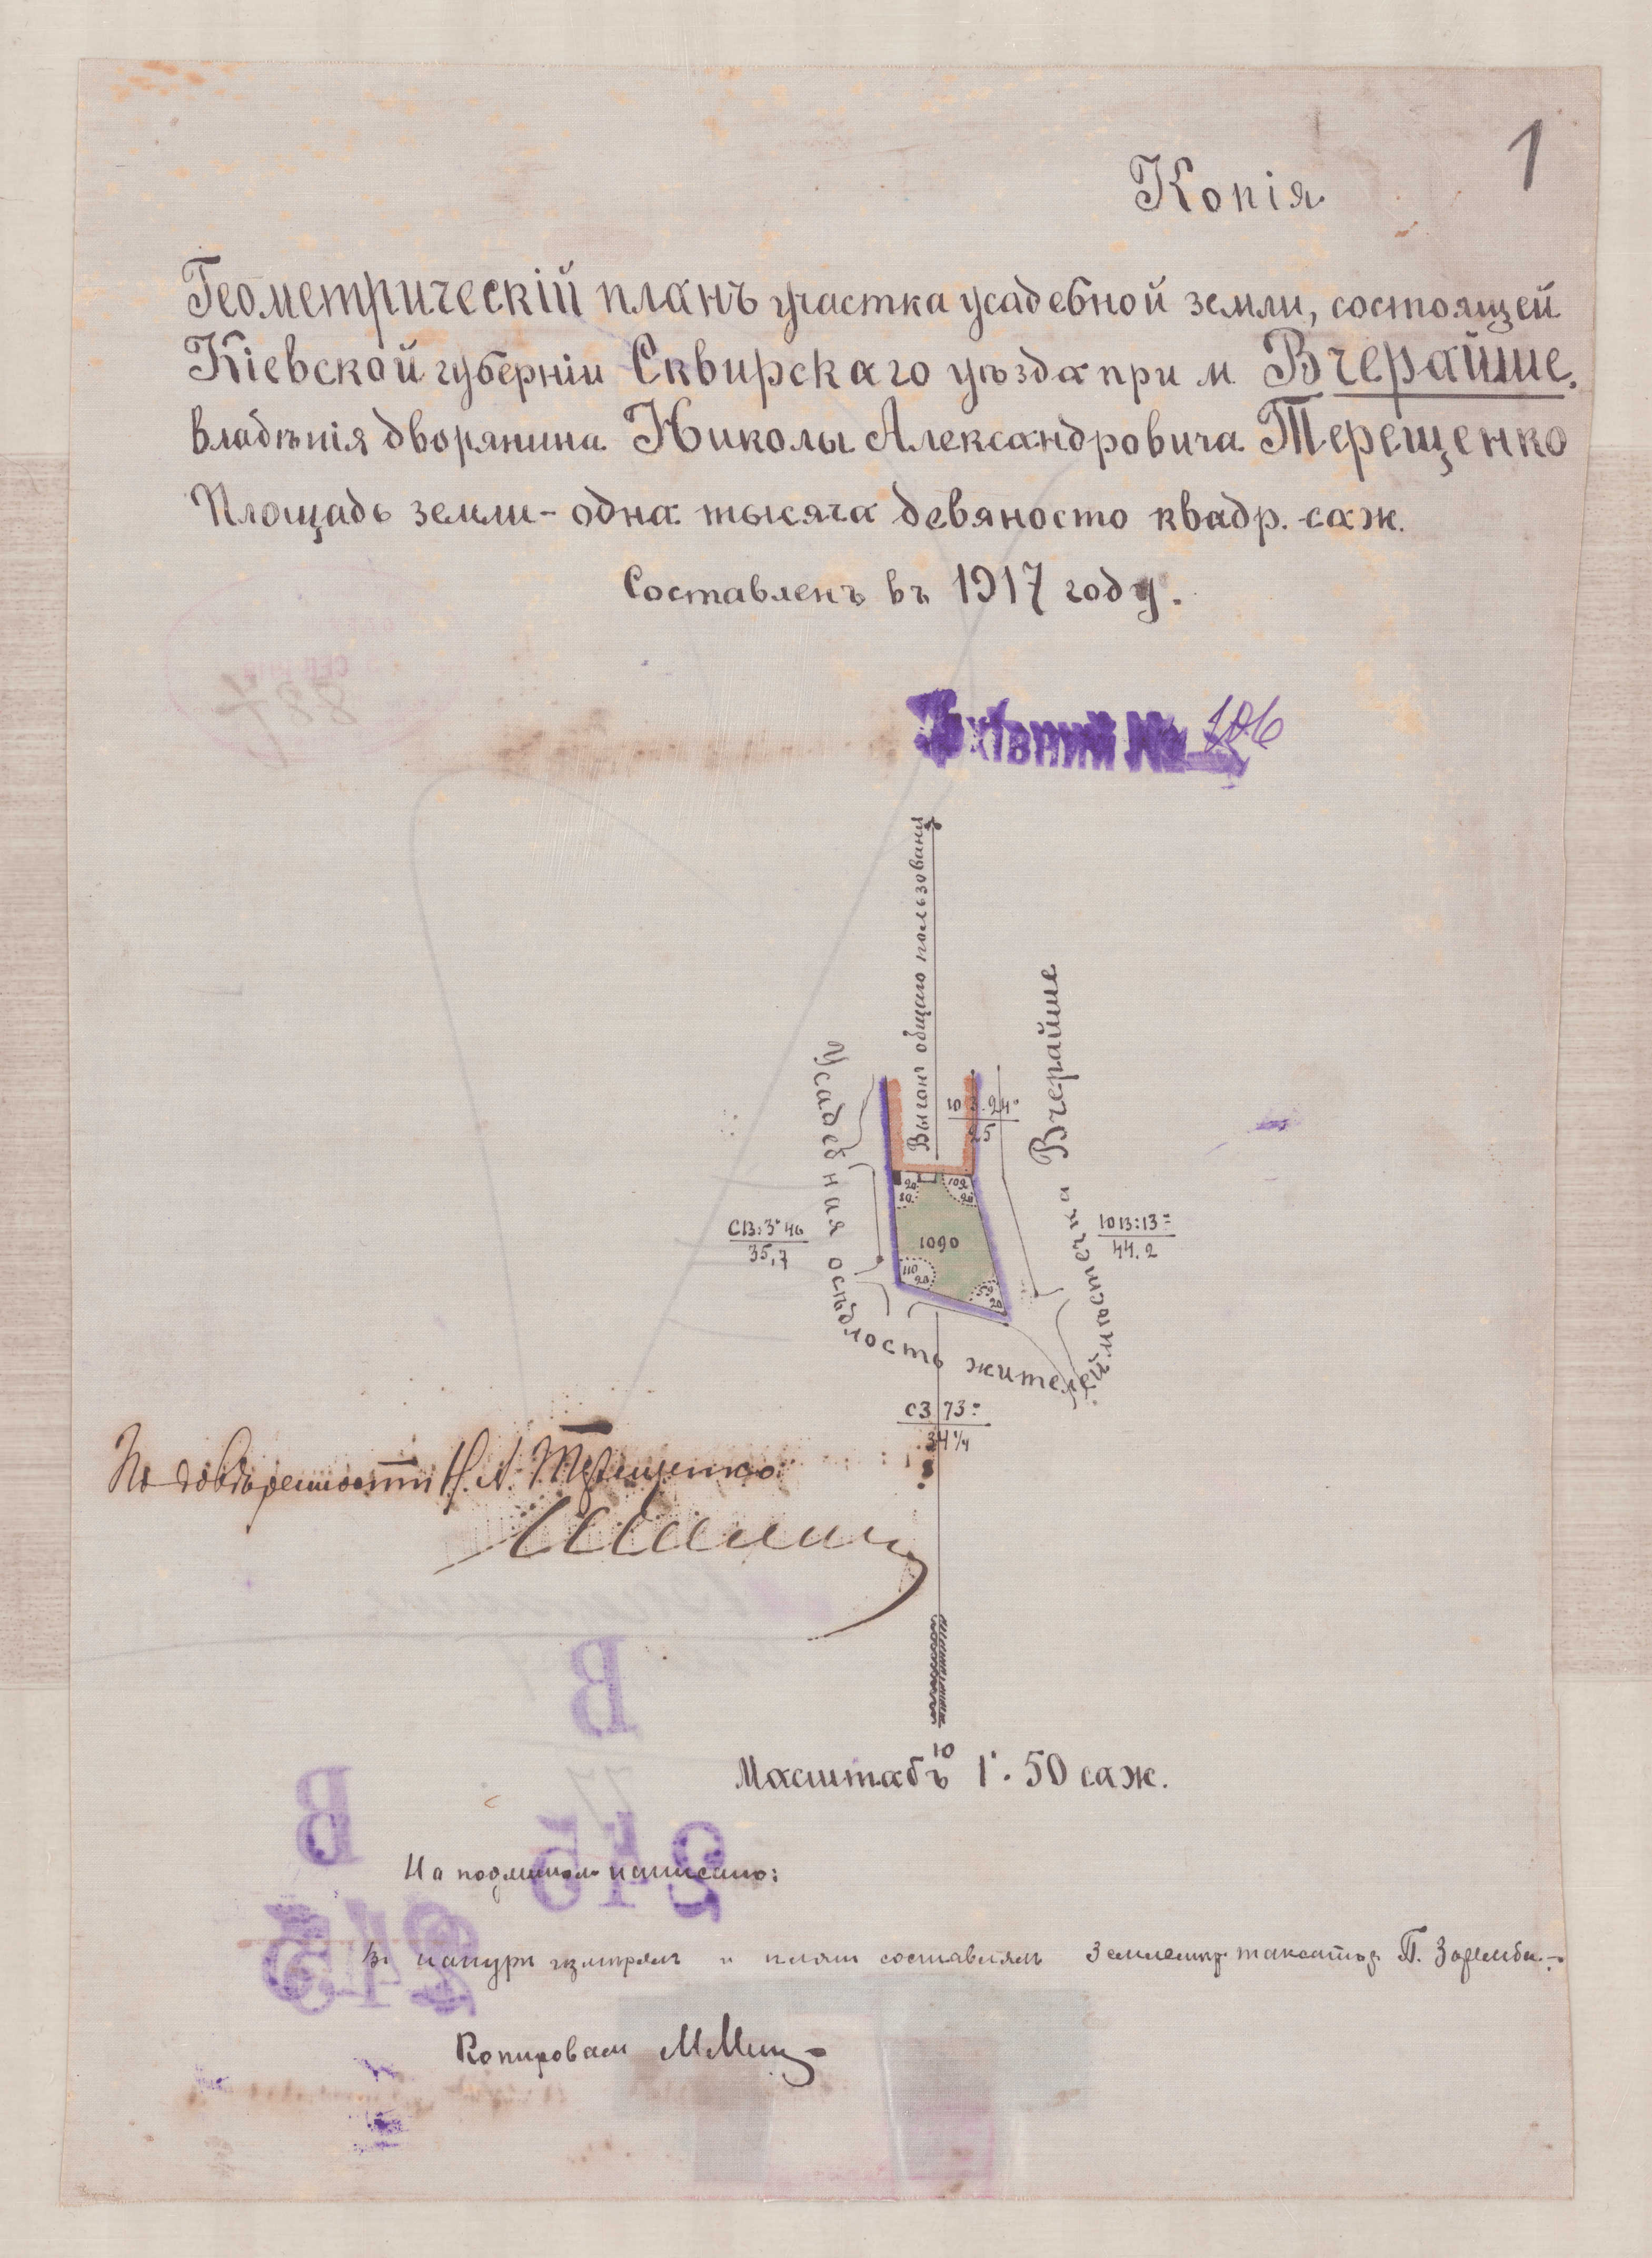 1
Копія
Геометрическій планъ участка усадебной земли, состоящей
Кіевской губерніи Сквирскаго уѣзда при м. Вчерайше.
Владѣнія дворянина Николы Александровича Терещенко
Площадь земли - одна тысяча девяносто квадр. саж.
Составленъ въ 1917 году.
887
Архівний № 106
Выгонъ общаго пользованія
Усадебная осѣдлость жителей мѣстечка Вчерайше
ЮЗ. 24°
25
СВ: 3° 46
35,7
ЮВ: 13°
44.2
1090
90
20
102
20
110
20
59
20
СЗ 73°
34 1/4
По довѣренности Н. А. Терещенко
Ю
Масштабъ 1": 50 саж.
В
77
В
245
На подлинномъ написано:
245
Въ натурѣ измѣрялъ и планъ составлялъ Землемѣръ таксаторъ П. Заремба.
Копировалъ